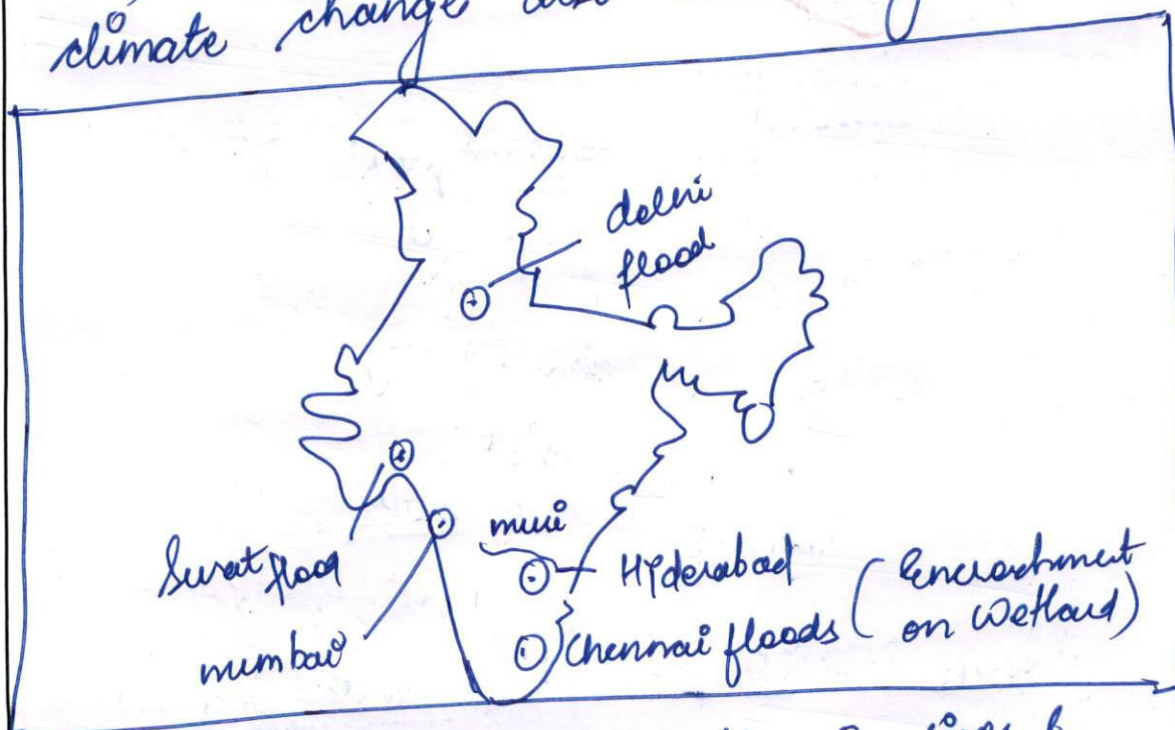 climate change
delhi
flood
Surat flood
mumbai
musi
Hyderabad
Chennai floods
(Encroachment
on Wetland)